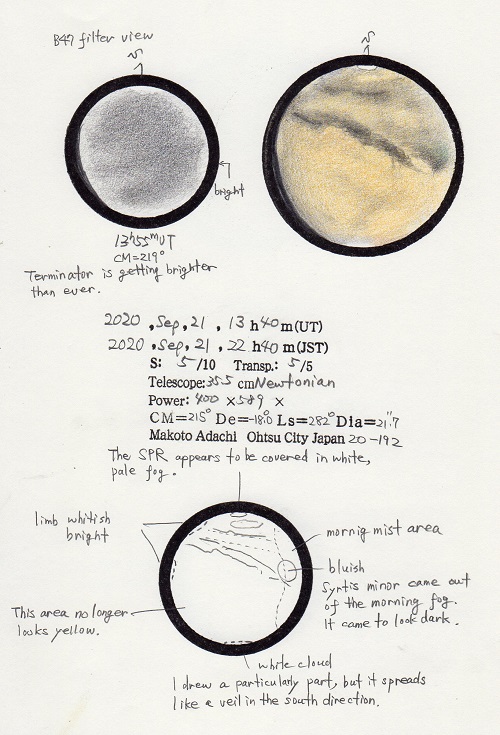 B47 filter view
S
S
bright
13h55mUT
CM=219°
Terminator is getting brighter
than ever.
2020 , Sep, 21 , 13 h 40 m (UT)
2020 , Sep, 21 , 22 h 40 m (JST)
S: 5 /10 Transp.: 5 /5
Telescope: 355 cm Newtonian
Power: 400 × 589 ×
CM=215° De=-18.0 Ls=282° Dia=21".7
Makoto Adachi Ohtsu City Japan 20-192
The SPR appears to be covered in white,
pale fog.
limb whitish
bright
mornig mist area
bluish
Syrtis minor came out
of the morning fog.
It came to look dark.
This area no longer
looks yellow.
white cloud
I drew a particularly part, but it spreads
like a veil in the south direction.